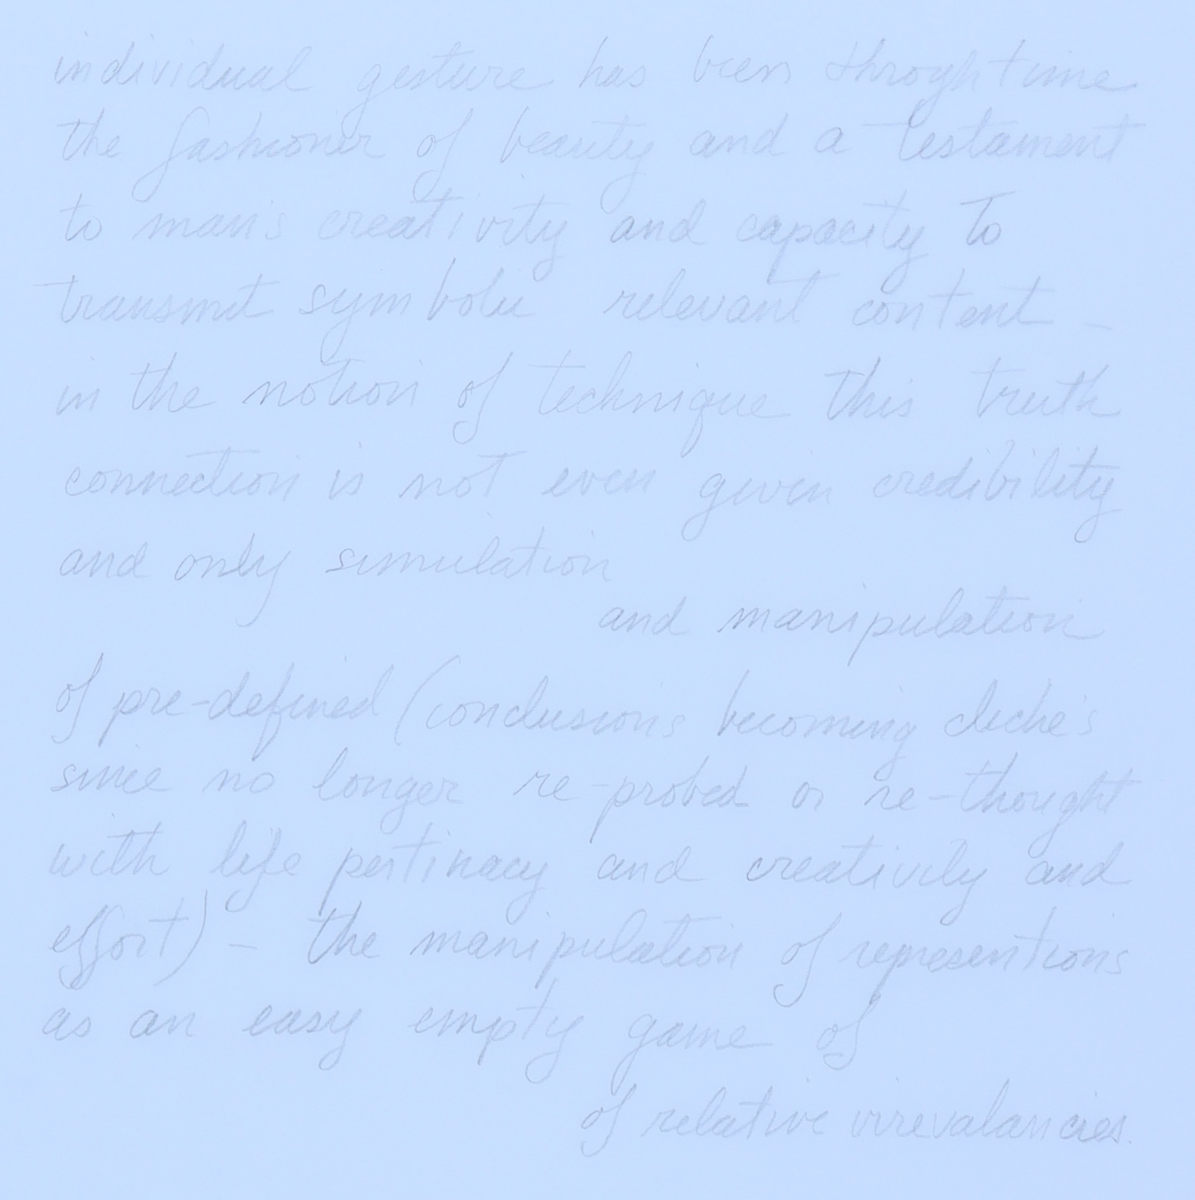 individual gesture has been throgh time
the fashioner of beauty and a testament
to man's creativity and capacity to
transmit symbolic relevant content –
in the notion of technique this truth
connection is not even given credibility
and only simulation
and manipulation
of pre-defined (conclusions becoming cliché's
since no longer re-probed or re-thought
with life pertinacy and creativily and
effort) – the manipulation of representions
as an easy empty game of
of relative